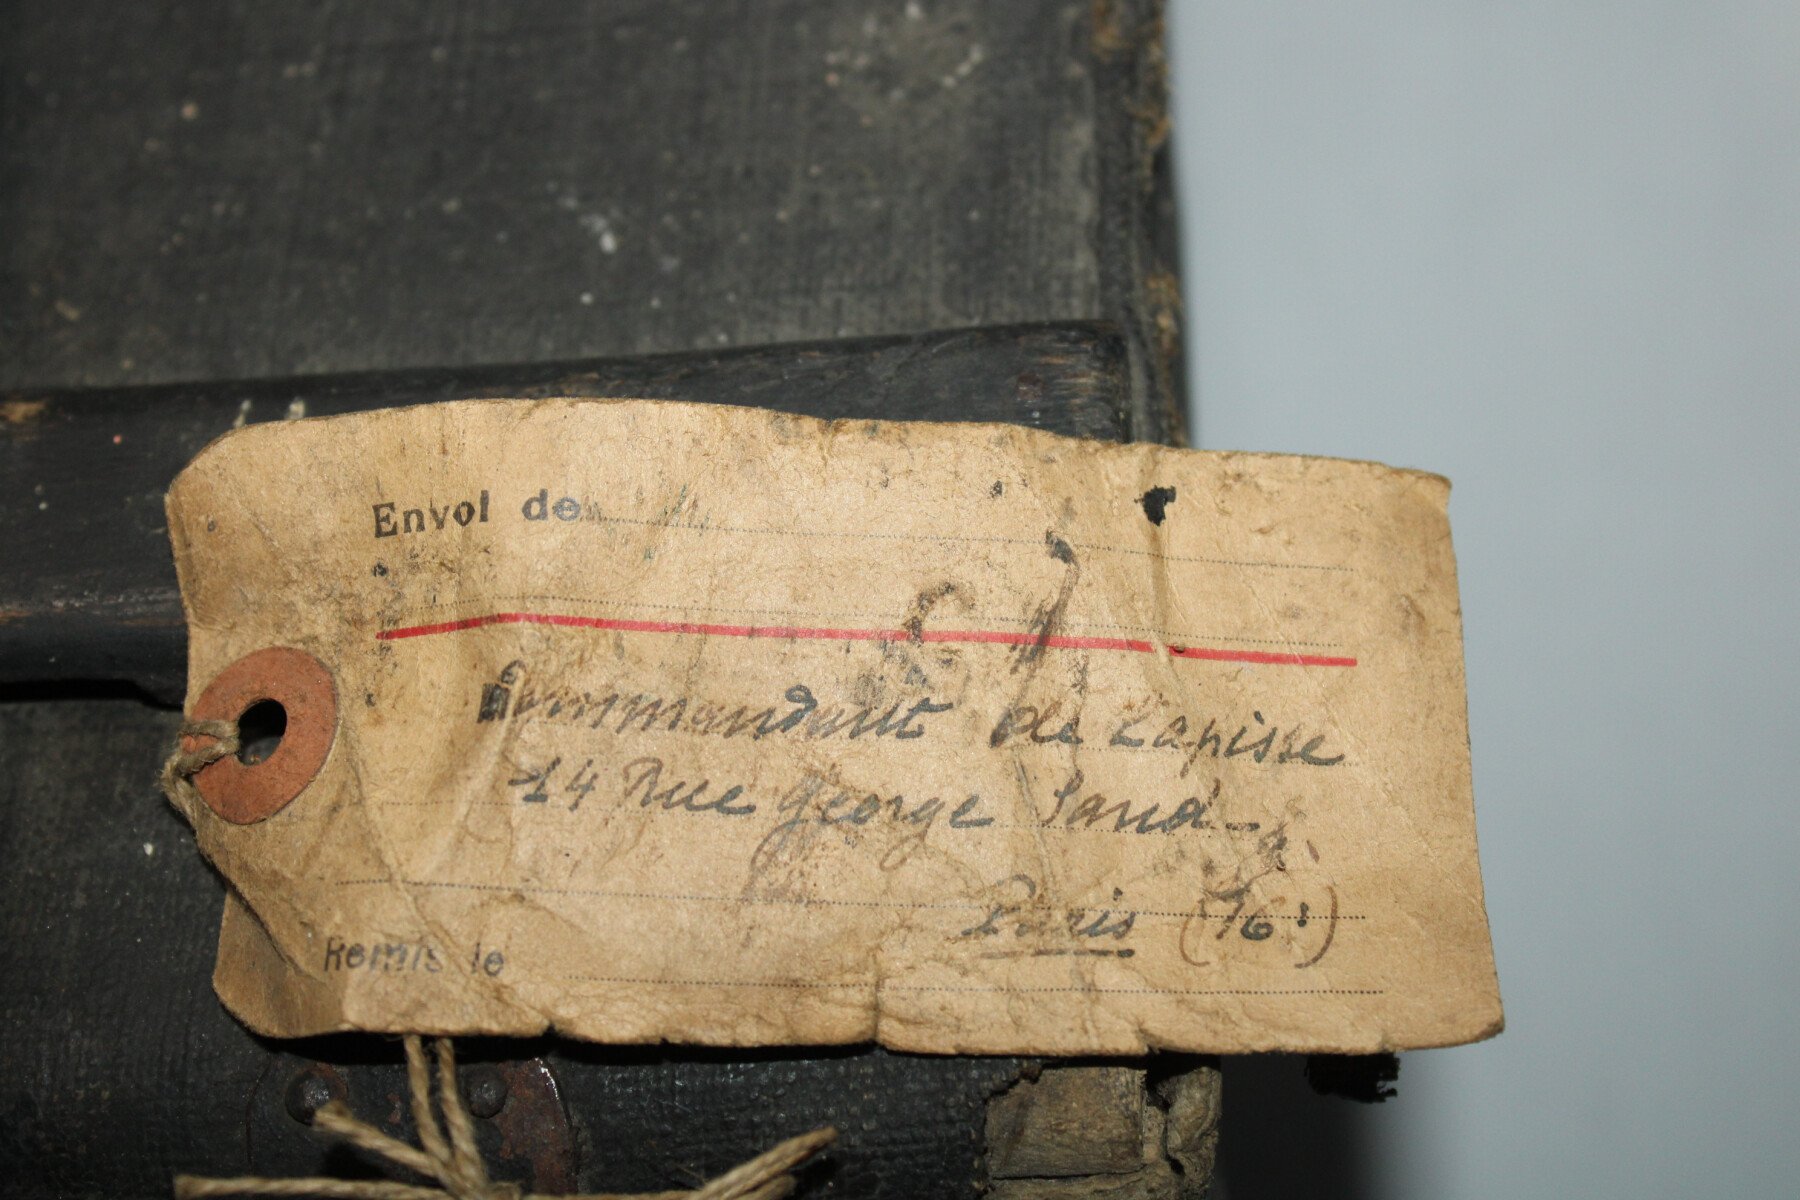 Envoi de
Commandant de Lapisse
14 Rue George Sand
Paris (16e)
Remis le